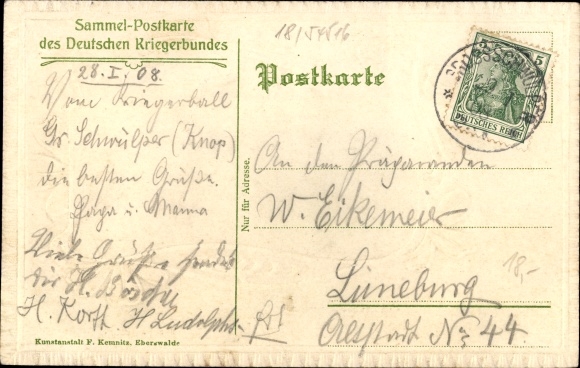 Sammel-Postkarte
des Deutschen Kriegerbundes
28.I.08.
Vom Kriegerball
Gr. Schwülper (Knop)
die besten Grüße.
Papa u. Mama
Viele Grüße sendet
dir H.
H. Korth H Ludolphs
Kunstanstalt F. Kemnitz, Eberswalde
18/54516
Postkarte
5
DEUTSCHES REICH
Nur für Adresse.
An den Präparanden
W. Eikemeier
Lüneburg
18,-
Altstadt No 44.